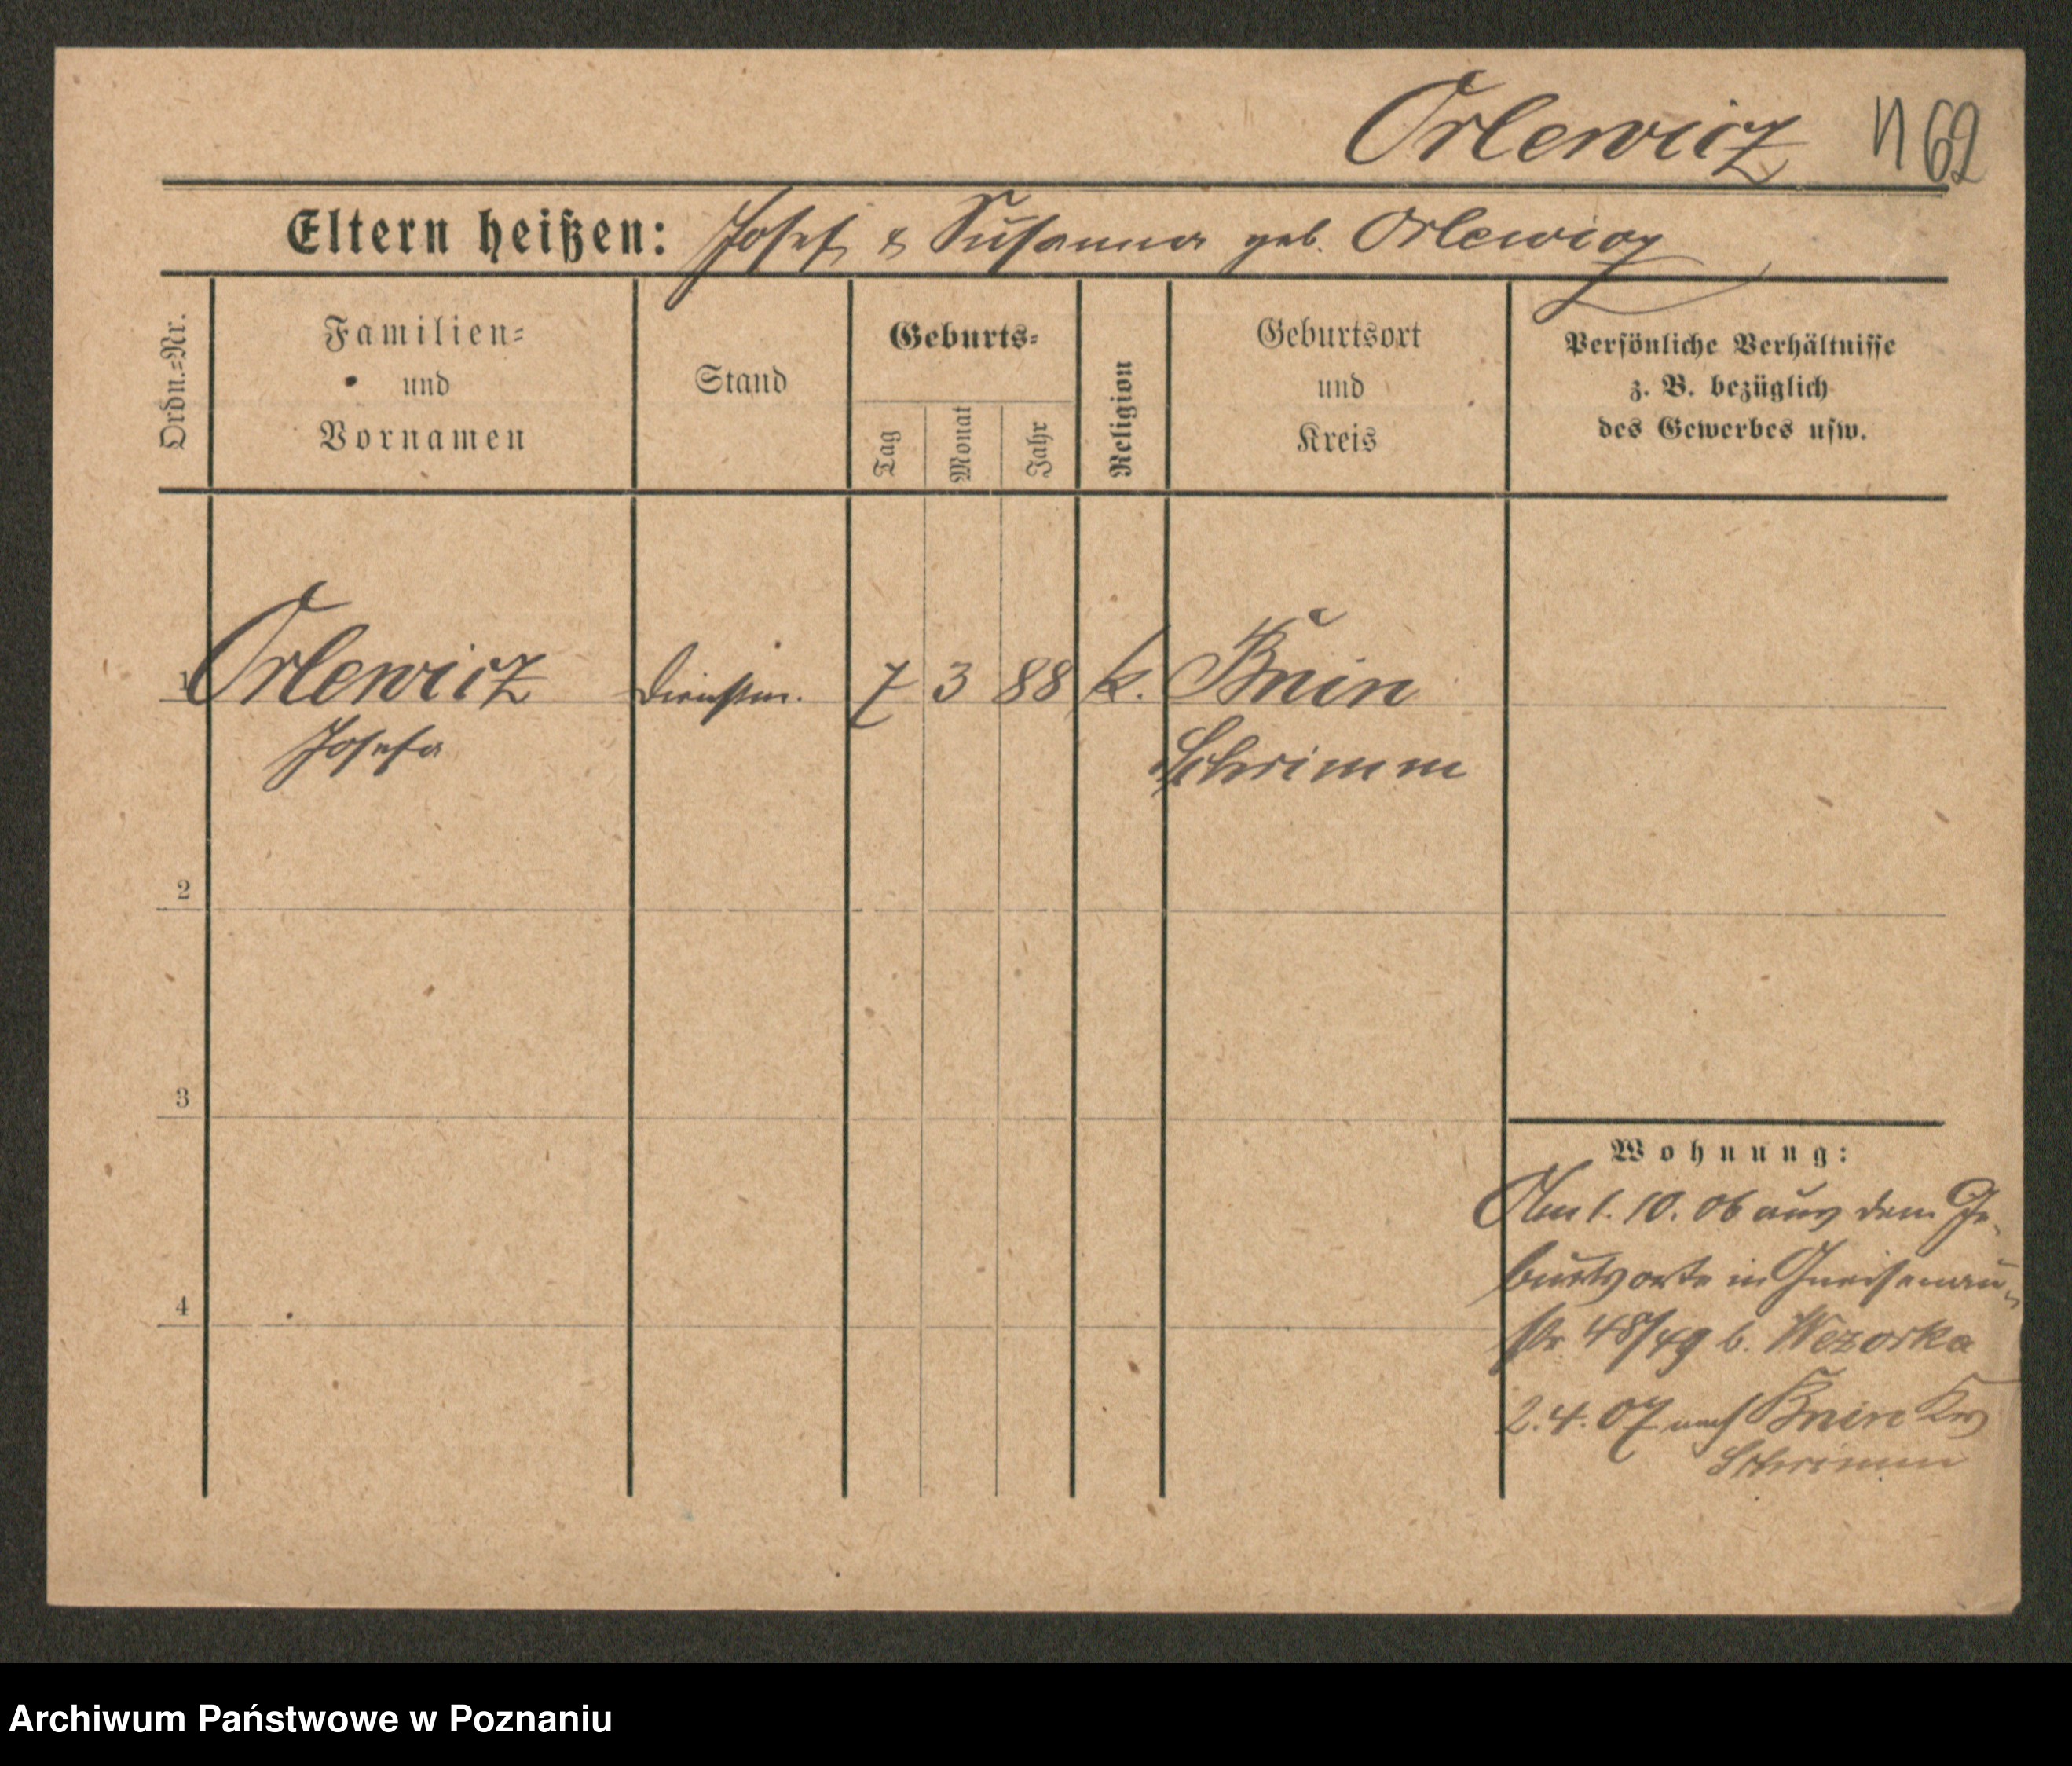 Orlewicz 1162
Eltern heißen: Josef & Susanna geb. Orlewicz
Ordn.-Nr.
Familien-
und
Vornamen
Stand
Geburts-
Tag
Monat
Jahr
Religion
Geburtsort
und
Kreis
Persönliche Verhältnisse
z. B. bezüglich
des Gewerbes usw.
1 Orlewicz Dienstm. 7 3 88 k. Bnin
Josefa Schrimm
2
3
4
Wohnung:
Am 1. 10. 06 aus dem Ge-
burtsorte in Gneisenau-
str 48/49 b. Wezorka
2. 4. 07 nach Bnin Krs
Schrimm
Archiwum Państwowe w Poznaniu